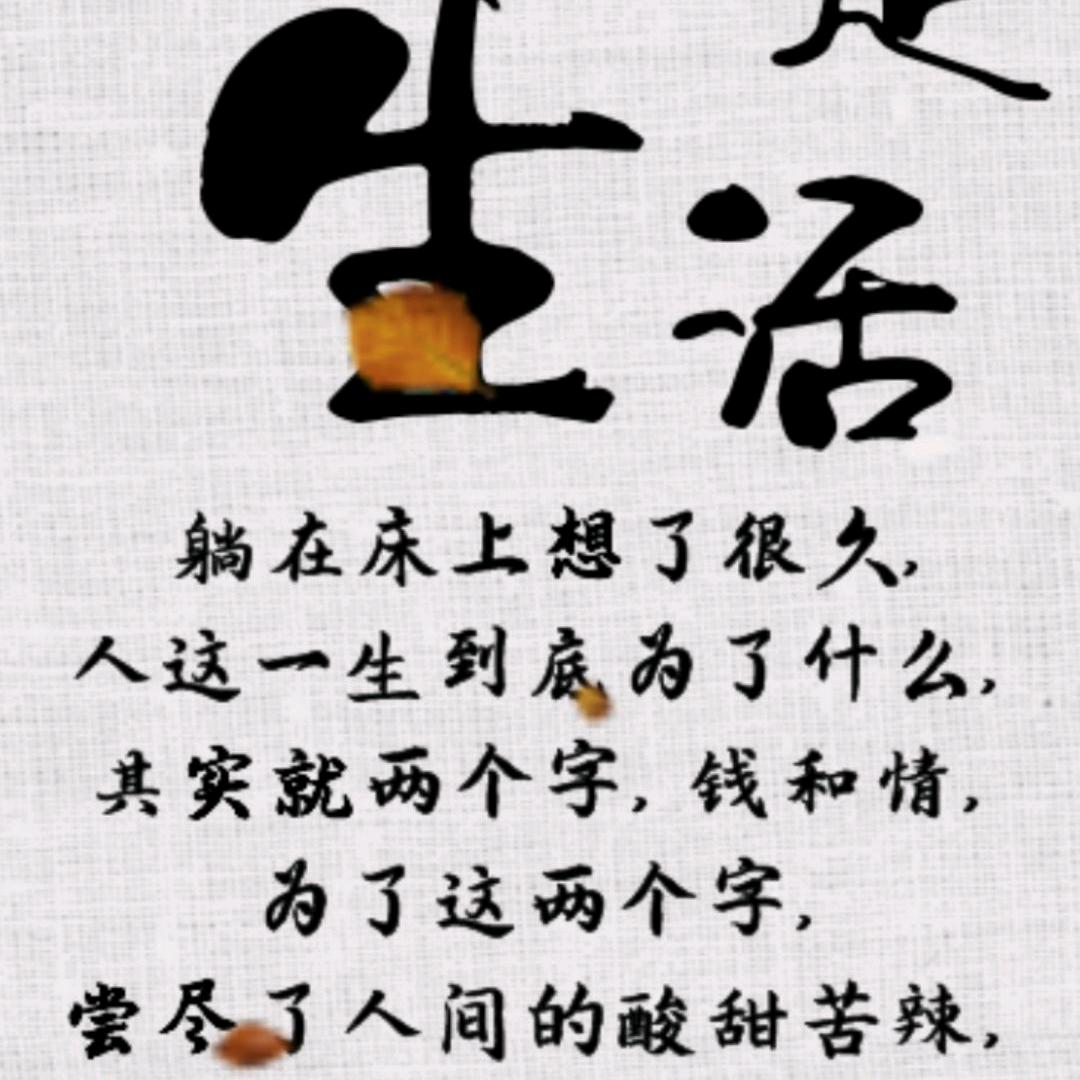 生活
躺在床上想了很久,
人这一生到底为了什么,
其实就两个字, 钱和情,
为了这两个字,
尝尽了人间的酸甜苦辣,